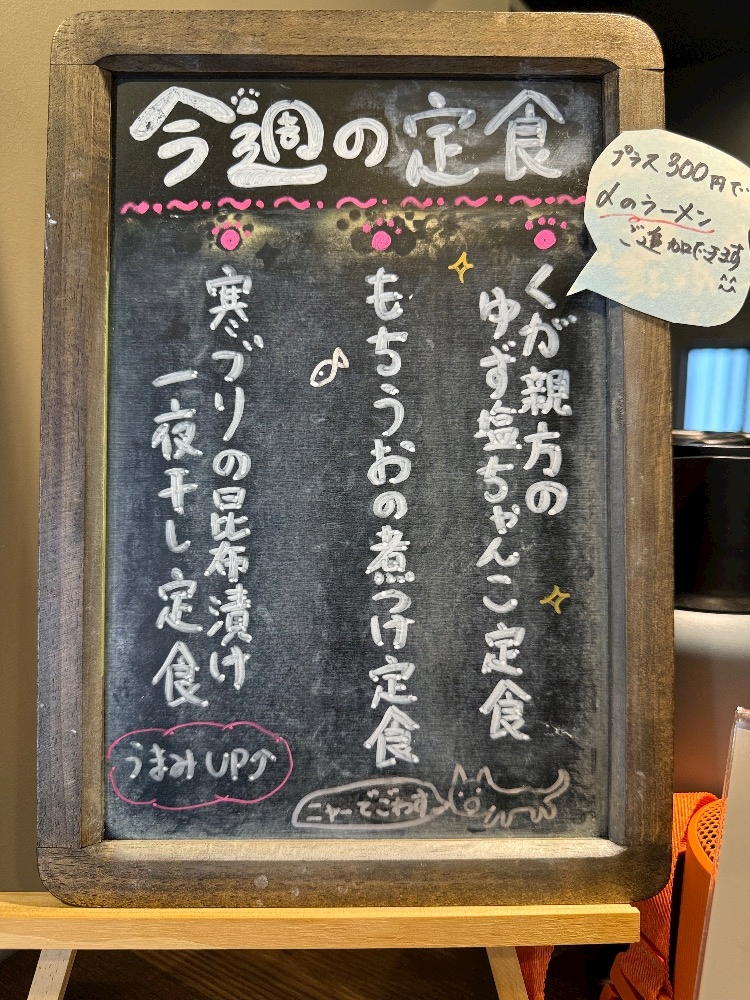 今週の定食
プラス300円で
〆のラーメン
ご追加できます
くが親方の
ゆず塩ちゃんこ定食
もちうおの煮つけ定食
寒ブリの昆布漬け
一夜干し定食
うまみUP↑
ニャーでごわす